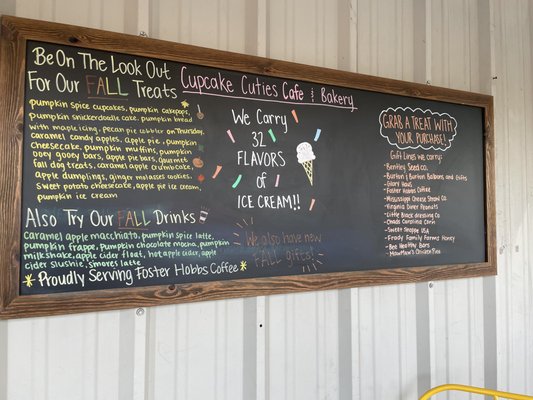 Be On The Look Out
For Our FALL Treats
pumpkin spice cupcakes, pumpkin cakepops,
pumpkin snickerdoodle cake, pumpkin bread
with maple icing, pecan pie cobbler on Thursday,
caramel candy apples, apple pie, pumpkin
cheesecake, pumpkin muffins, pumpkin
ooey gooey bars, apple pie bars, Gourmet
fall dog treats, caramel apple crumb cake,
apple dumplings, ginger molasses cookies,
sweet potato cheesecake, apple pie ice cream,
pumpkin ice cream
Also Try Our FALL Drinks
caramel apple macchiato, pumpkin spice latte,
pumpkin frappe, pumpkin chocolate mocha, pumpkin
milkshake, apple cider float, hot apple cider, apple
cider slushie, smores latte
Proudly Serving Foster Hobbs Coffee
Cupcake Cuties Cafe & Bakery
We Carry
32
FLAVORS
of
ICE CREAM!!
We also have new
FALL gifts!
GRAB A TREAT WITH
YOUR PURCHASE!
Gift Lines we carry:
-Bentley Seed Co.
-Burton & Burton Balloons and Gifts
-Glory Haus
-Foster Hobbs Coffee
-Mississippi Cheese Straw Co
-Virginia Diner Peanuts
-Little Black dressing Co
-Sweet Shoppe USA
-Frady Family Farms Honey
-Bee Healthy Bars